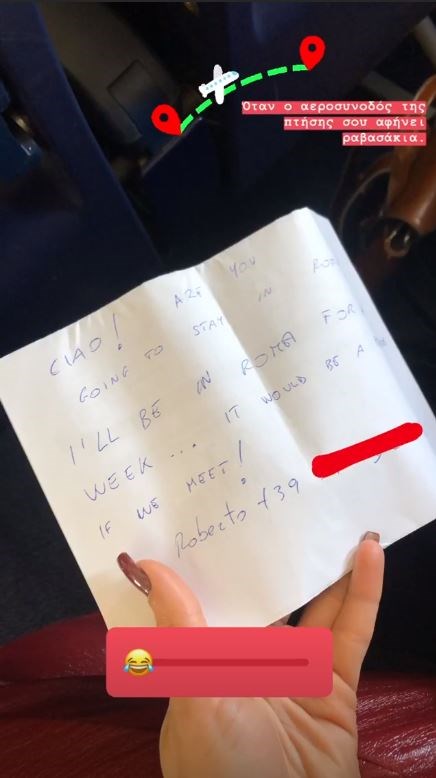 Όταν ο αεροσυνοδός της
πτήσης σου αφήνει
ραβασάκια.
CIAO! ARE YOU
GOING TO STAY IN
I'LL BE IN ROMA FOR
WEEK... IT WOULD BE A
IF WE MEET!
Roberto +39